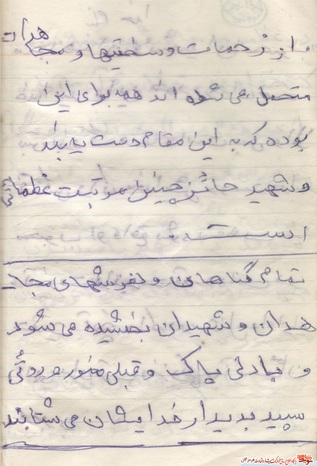 از زحمات و سختیها و مجاهدات
متحمل می شوند همه برای این
بوده که به این مقام دست یابند
و شهید حائز چنین مرتبت عظمائی
است
تمام گناهان و لغزشهای مجا
هدان و شهیدان بخشیده می شود
و با دلی پاک و قلبی منور و روئی
سپید بدیدار خدایشان می شتابند